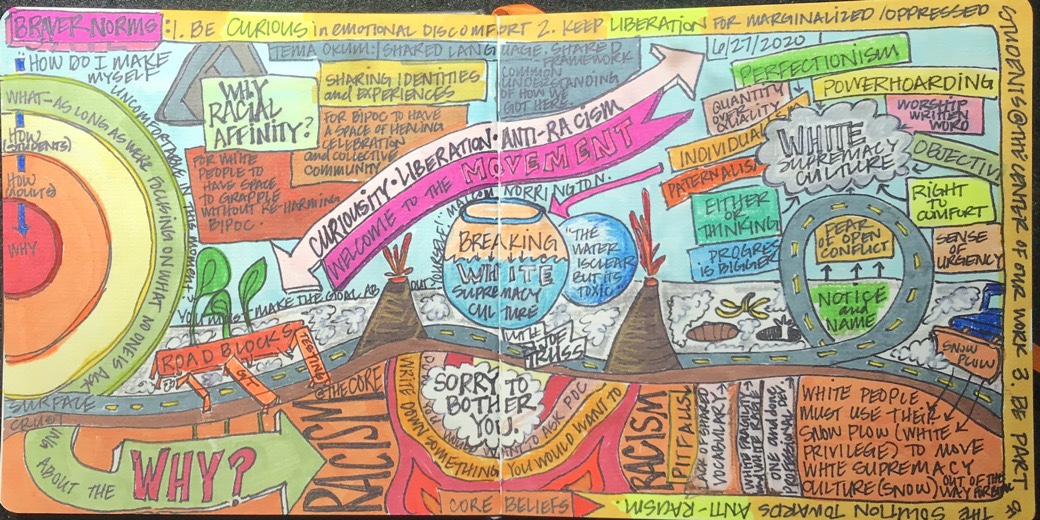 BRAVER NORMS: 1. BE CURIOUS in EMOTIONAL DISCOMFORT 2. KEEP LIBERATION FOR MARGINALIZED / OPPRESSED
STUDENTS @ THE CENTER OF OUR WORK 3. BE PART OF
THE SOLUTION TOWARDS ANTI-RACISM.
HOW DO I MAKE
MYSELF
UNCOMFORTABLE IN THIS MOMENT?
WHAT-AS LONG AS WE'RE FOCUSING ON WHAT NO ONE IS
HOW
(STUDENTS)
HOW
(ADULTS)
WHY
SURFACE
CRUST
ABOUT THE
WHY?
WHY
RACIAL
AFFINITY?
TEMA OKUM: SHARED LANGUAGE. SHARED
FRAMEWORK
COMMON
UNDERSTANDING
OF HOW WE
GOT HERE.
SHARING IDENTITIES
and EXPERIENCES
FOR BIPOC TO HAVE
A SPACE OF HEALING
CELEBRATION
and COLLECTIVE
COMMUNITY
FOR WHITE
PEOPLE TO
HAVE SPACE
TO GRAPPLE
WITHOUT RE-HARMING
BIPOC.
CURIOUSITY · LIBERATION · ANTI-RACISM
WELCOME TO THE MOVEMENT
YOU
MAKE THE GOAL ABOUT
YOURSELF."
NORRINGTON.
ROAD BLOCKS
TESTING
BREAKING
WHITE
SUPREMACY
CULTURE
WITH JOE
TRUSS
"THE
WATER
IS CLEAR
BUT ITS
TOXIC"
6/27/2020
PERFECTIONISM
POWERHOARDING
QUANTITY
OVER
QUALITY
WORSHIP
WRITTEN
WORD
PATERNALIS
WHITE
SUPREMACY
CULTURE
EITHER
OR
THINKING
RIGHT
TO
COMFORT
PROGRES
IS BIGGER
SENSE
OF
URGENCY
FEAR
OF OPEN
CONFLICT
NOTICE
and
NAME
SNOW
PLOW
@ THE CORE
RACISM
SORRY TO
BOTHER
YOU.
WRITE DOWN SOMETHING YOU WOULD WANT TO
ASK POC
CORE BELIEFS
RACISM
PITFALLS
LACK OF SHARED
VOCABULARY
WHITE FRAGILITY
and WHITE RAGE
ONE and DONE
PROFESSIONAL DEV.
WHITE PEOPLE
MUST USE THEIR
SNOW PLOW (WHITE
PRIVILEGE) TO MOVE
WHITE SUPREMACY
CULTURE (SNOW) OUT OF THE
WAY FOR